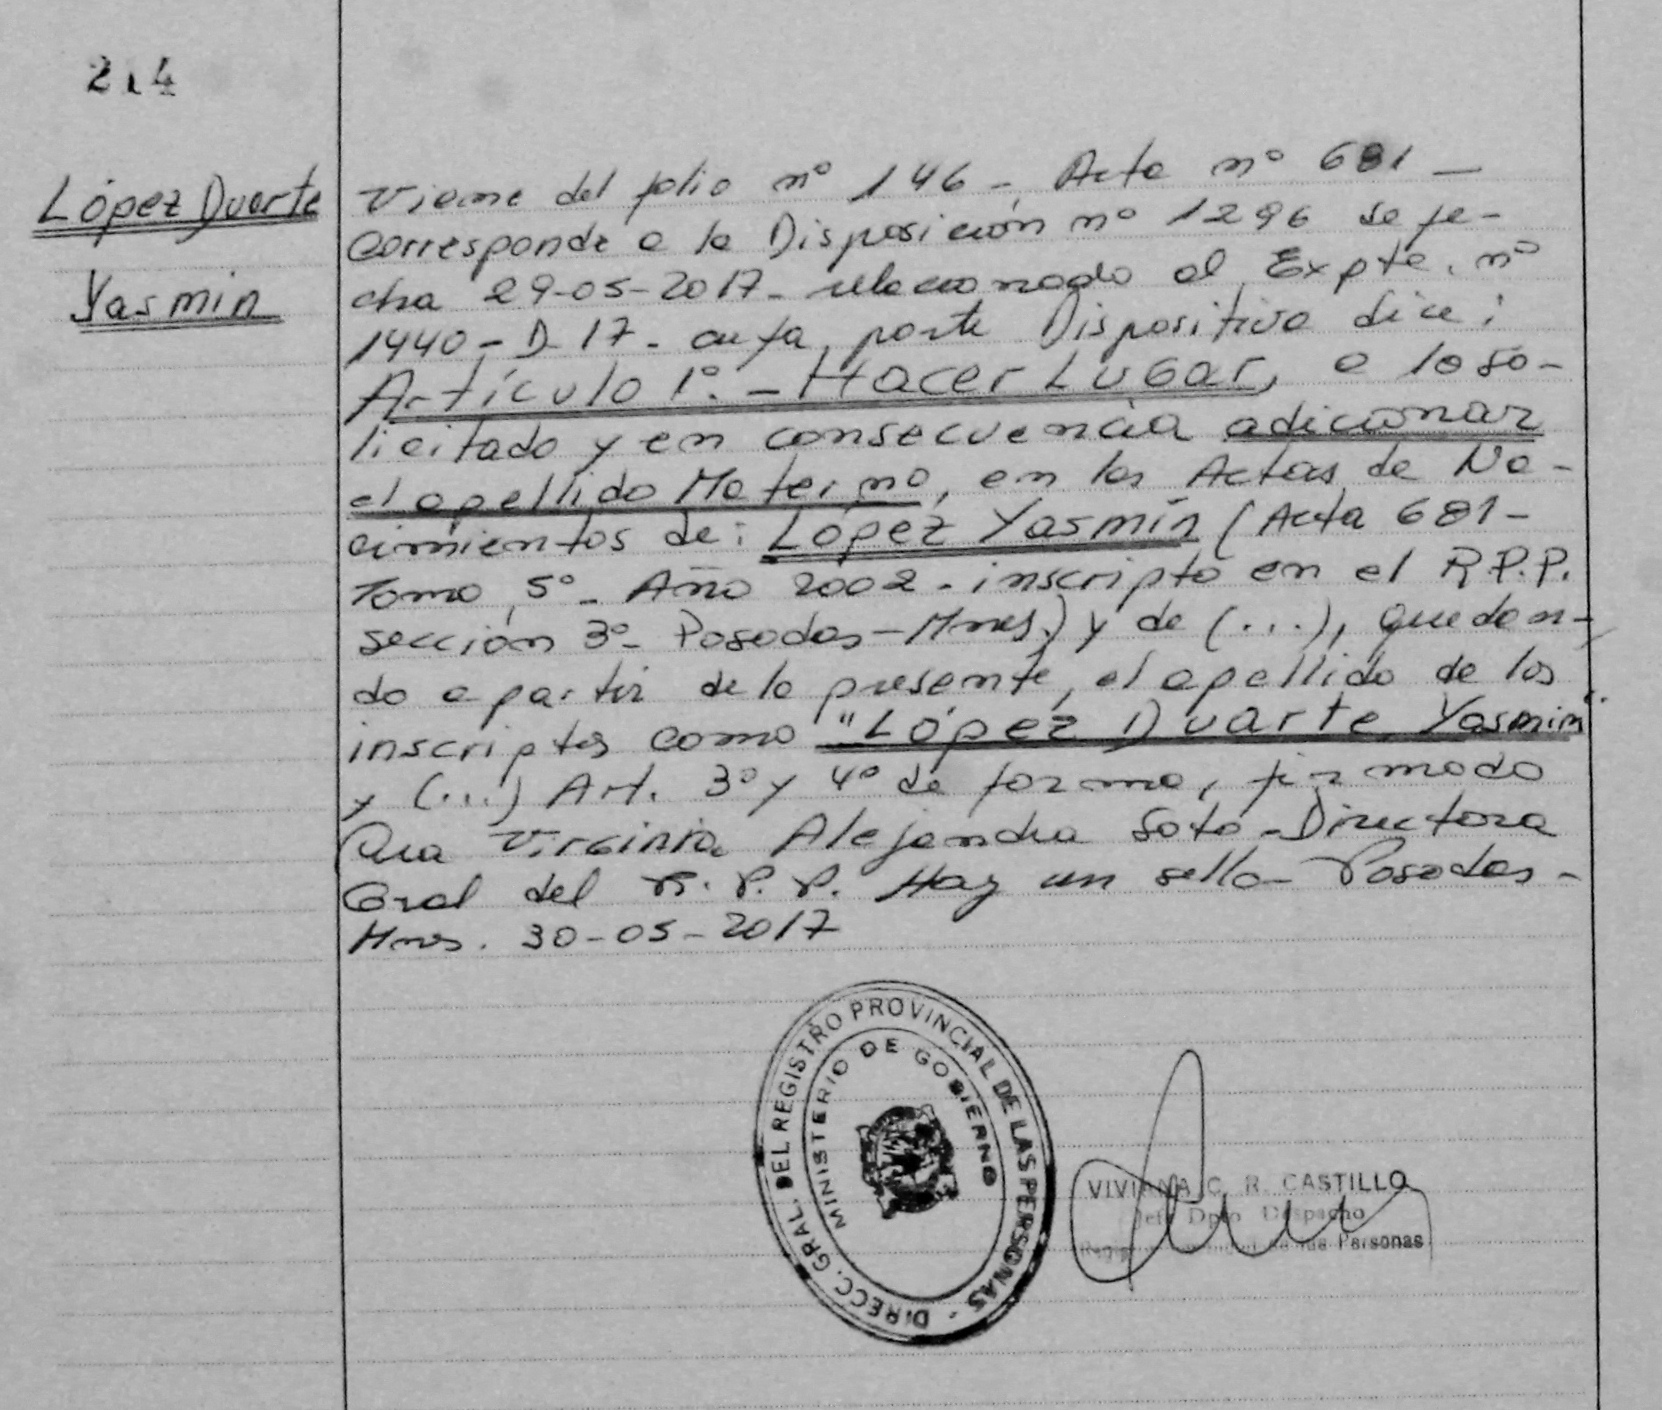 214
López Duarte
Yasmin
Viene del folio nº 146 - Acta nº 681 -
Corresponde a la Disposición nº 1296 de fe-
cha 29-05-2017 - relacionado al Expte. nº
1440 - D 17 - cuya parte Dispositiva dice:
Artículo 1º. - Hacer Lugar, a lo so-
licitado y en consecuencia adicionar
el apellido Materno, en las Actas de Na-
cimientos de: López Yasmín (Acta 681 -
Tomo 5º - Año 2002 - inscripto en el R.P.P.
sección 3º - Posadas - Mnes.) y de (...), quedan-
do a partir de la presente, el apellido de los
inscriptos como "López Duarte Yasmin"
y (...) Art. 3º y 4º de forma, firmado
Dra Virginia Alejandra Soto - Directora
Gral del R. P. P. Hay un sello - Posadas -
Mnes. 30-05-2017
DIRECC. GRAL. DEL REGISTRO PROVINCIAL DE LAS PERSONAS -
MINISTERIO DE GOBIERNO
VIVIANA C. R. CASTILLO
Jefe Dpto Despacho
de las Personas